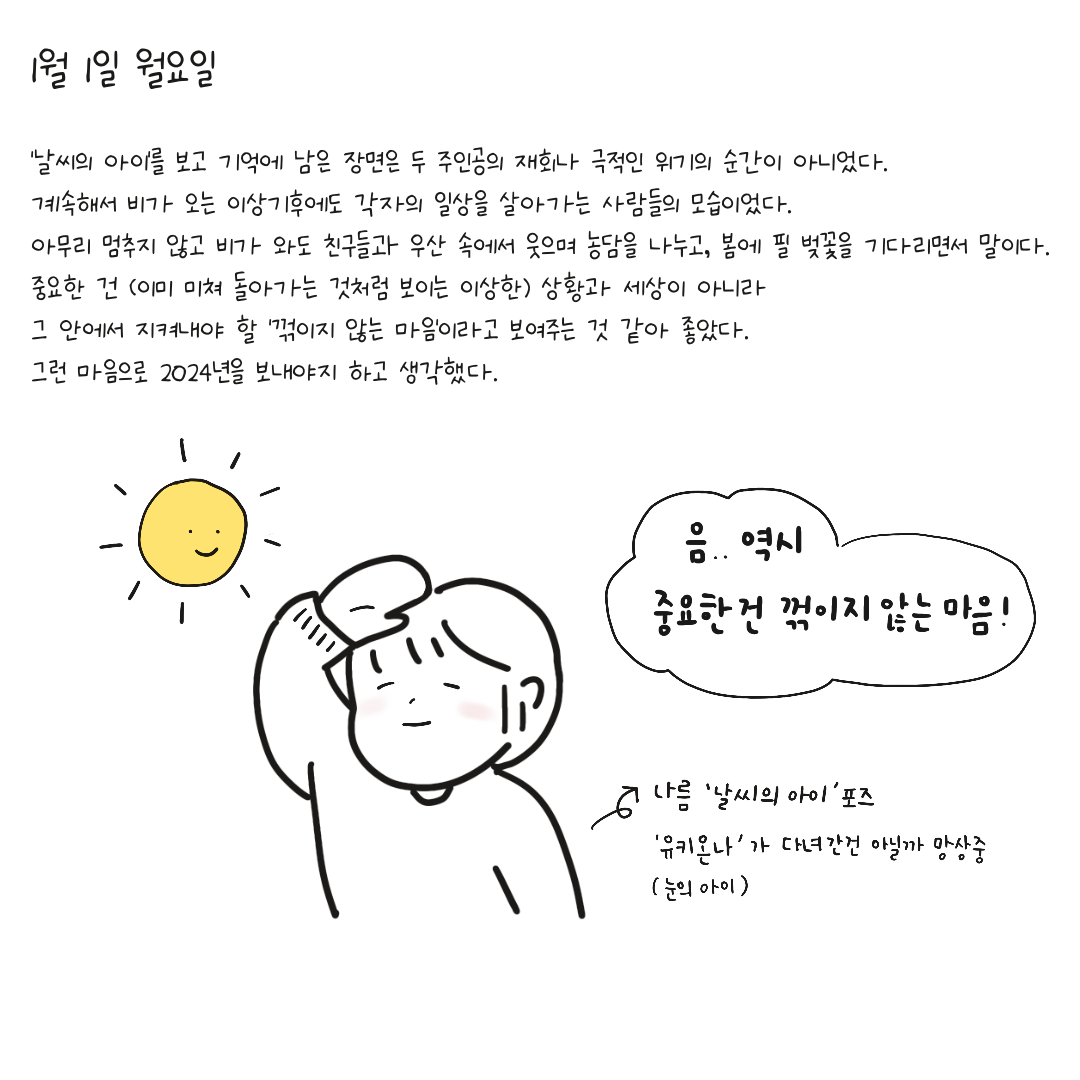 1월 1일 월요일
'날씨의 아이'를 보고 기억에 남은 장면은 두 주인공의 재회나 극적인 위기의 순간이 아니었다.
계속해서 비가 오는 이상기후에도 각자의 일상을 살아가는 사람들의 모습이었다.
아무리 멈추지 않고 비가 와도 친구들과 우산 속에서 웃으며 농담을 나누고, 봄에 필 벚꽃을 기다리면서 말이다.
중요한 건 (이미 미쳐 돌아가는 것처럼 보이는 이상한) 상황과 세상이 아니라
그 안에서 지켜내야 할 '꺾이지 않는 마음'이라고 보여주는 것 같아 좋았다.
그런 마음으로 2024년을 보내야지 하고 생각했다.
음.. 역시
중요한 건 꺾이지 않는 마음!
나름 '날씨의 아이' 포즈
'유키온나'가 다녀간건 아닐까 망상중
(눈의 아이)